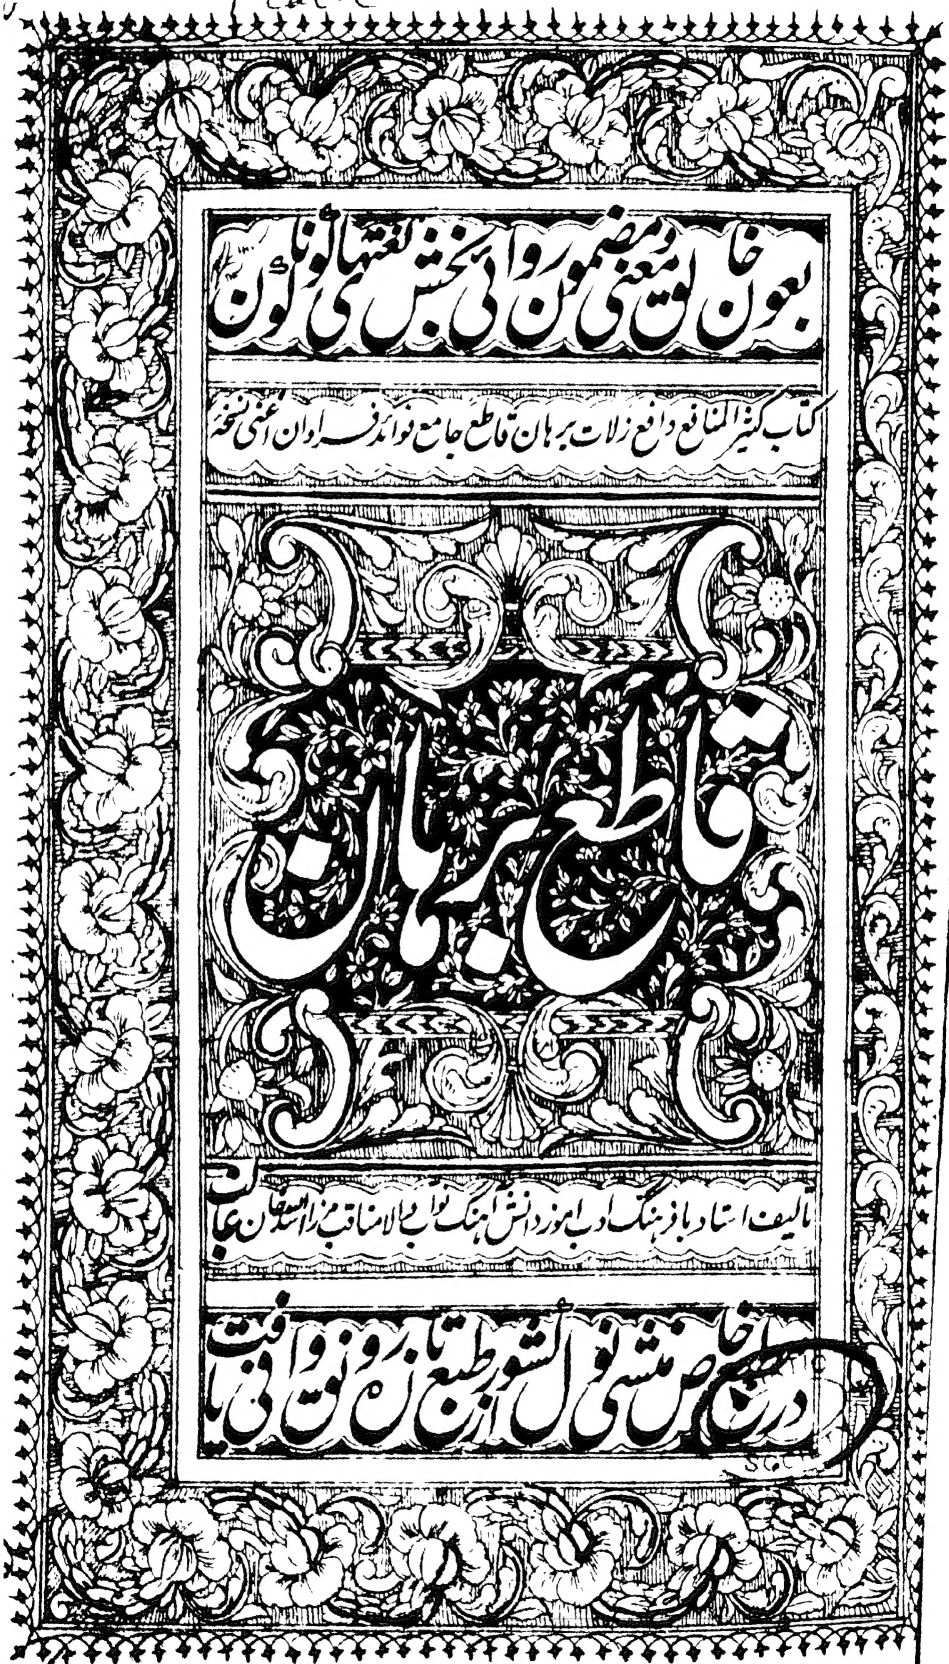 بعون خالق معنی و مضمون روائی بخش نعتهای گوناگون
کتاب کثیر المنافع دافع زلات برهان قاطع جامع فوائد فراوان اعنی نسخهٔ
قاطع برهان
تالیف استاد با فرہنگ ادب آموز دانش آہنگ نواب والا مناقب مرزا اسد اللہ خان غالب
در خاص منشی نول کشور از طبع تازه رونق وافی یافت